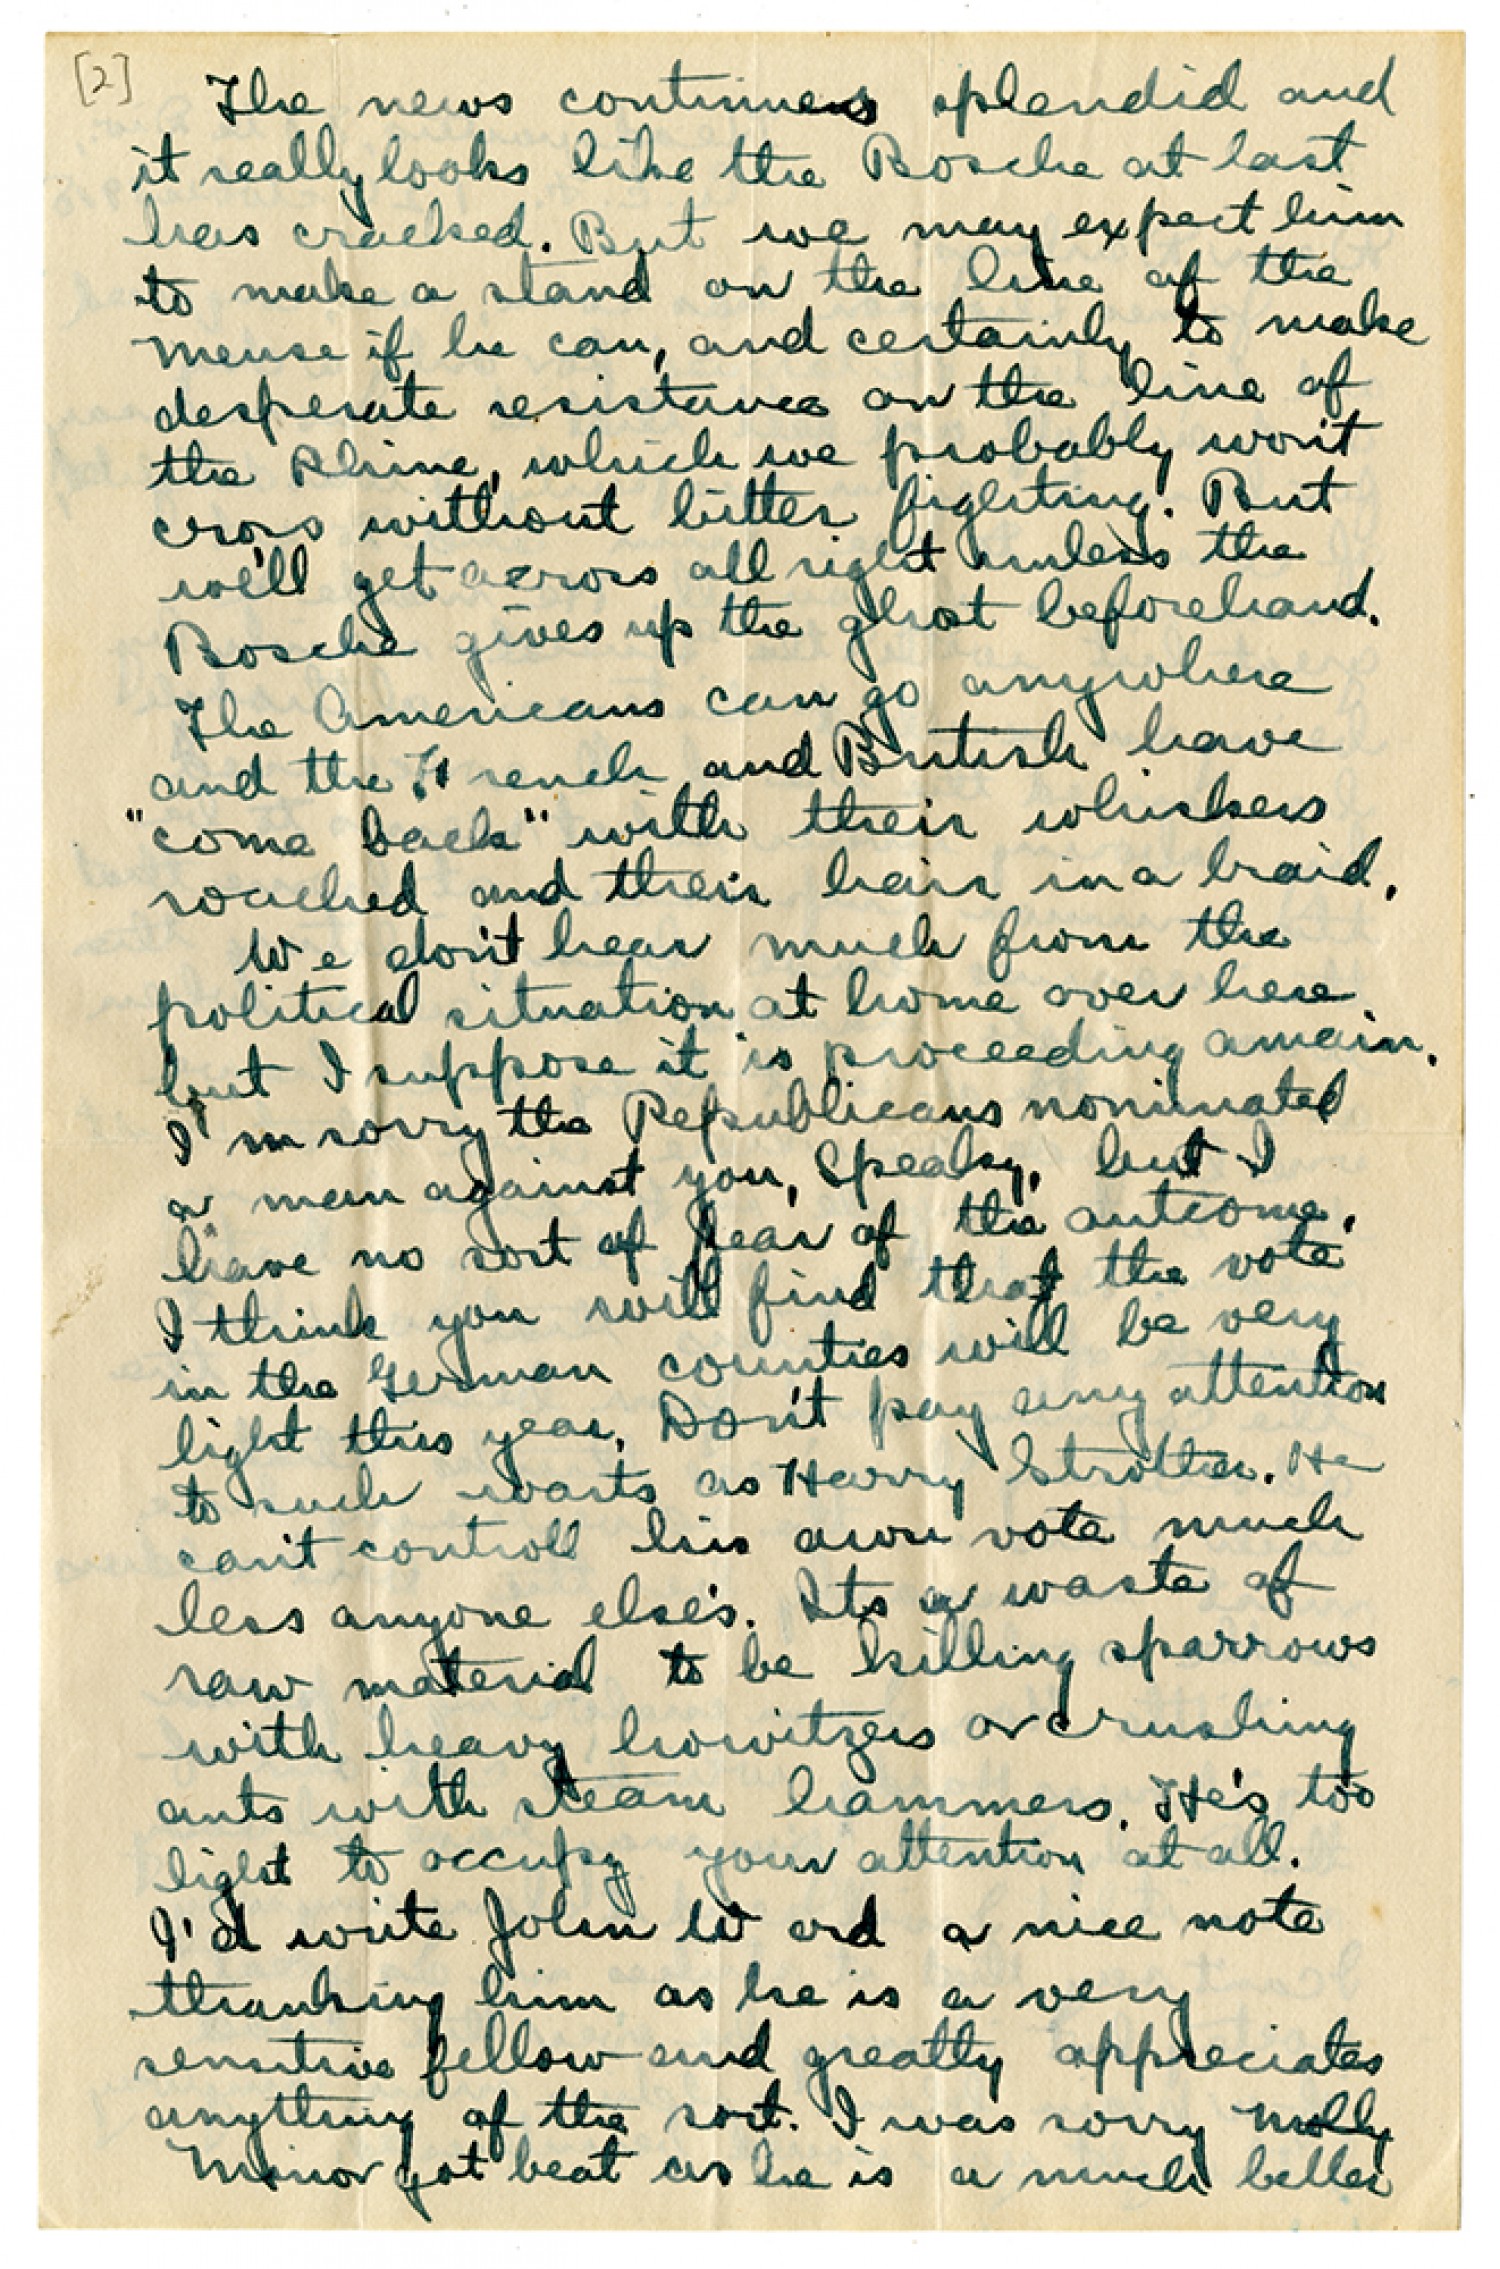 [2]
The news continues splendid and
it really looks like the Bosche at last
has cracked. But we may expect him
to make a stand on the line of the
Meuse if he can, and certainly to make
desperate resistance on the line of
the Rhine, which we probably won't
cross without bitter fighting. But
we'll get across all right unless the
Bosche gives up the ghost beforehand.
The Americans can go anywhere
and the French and British have
"come back" with their whiskers
roached and their hair in a braid.
We don't hear much from the
political situation at home over here
but I suppose it is proceeding amain.
I'm sorry the Republicans nominated
a man against you, Speaky, but I
have no sort of fear of the outcome.
I think you will find that the vote
in the German counties will be very
light this year. Don't pay any attention
to such warts as Harry Strother. He
can't controll his own vote much
less anyone else's. Its a waste of
raw material to be killing sparrows
with heavy howitzers or crushing
ants with steam hammers. He's too
light to occupy your attention at all.
I'd write John Ward a nice note
thanking him as he is a very
sensitive fellow and greatly appreciates
anything of the sort. I was sorry Molly
Minor got beat as he is a much better